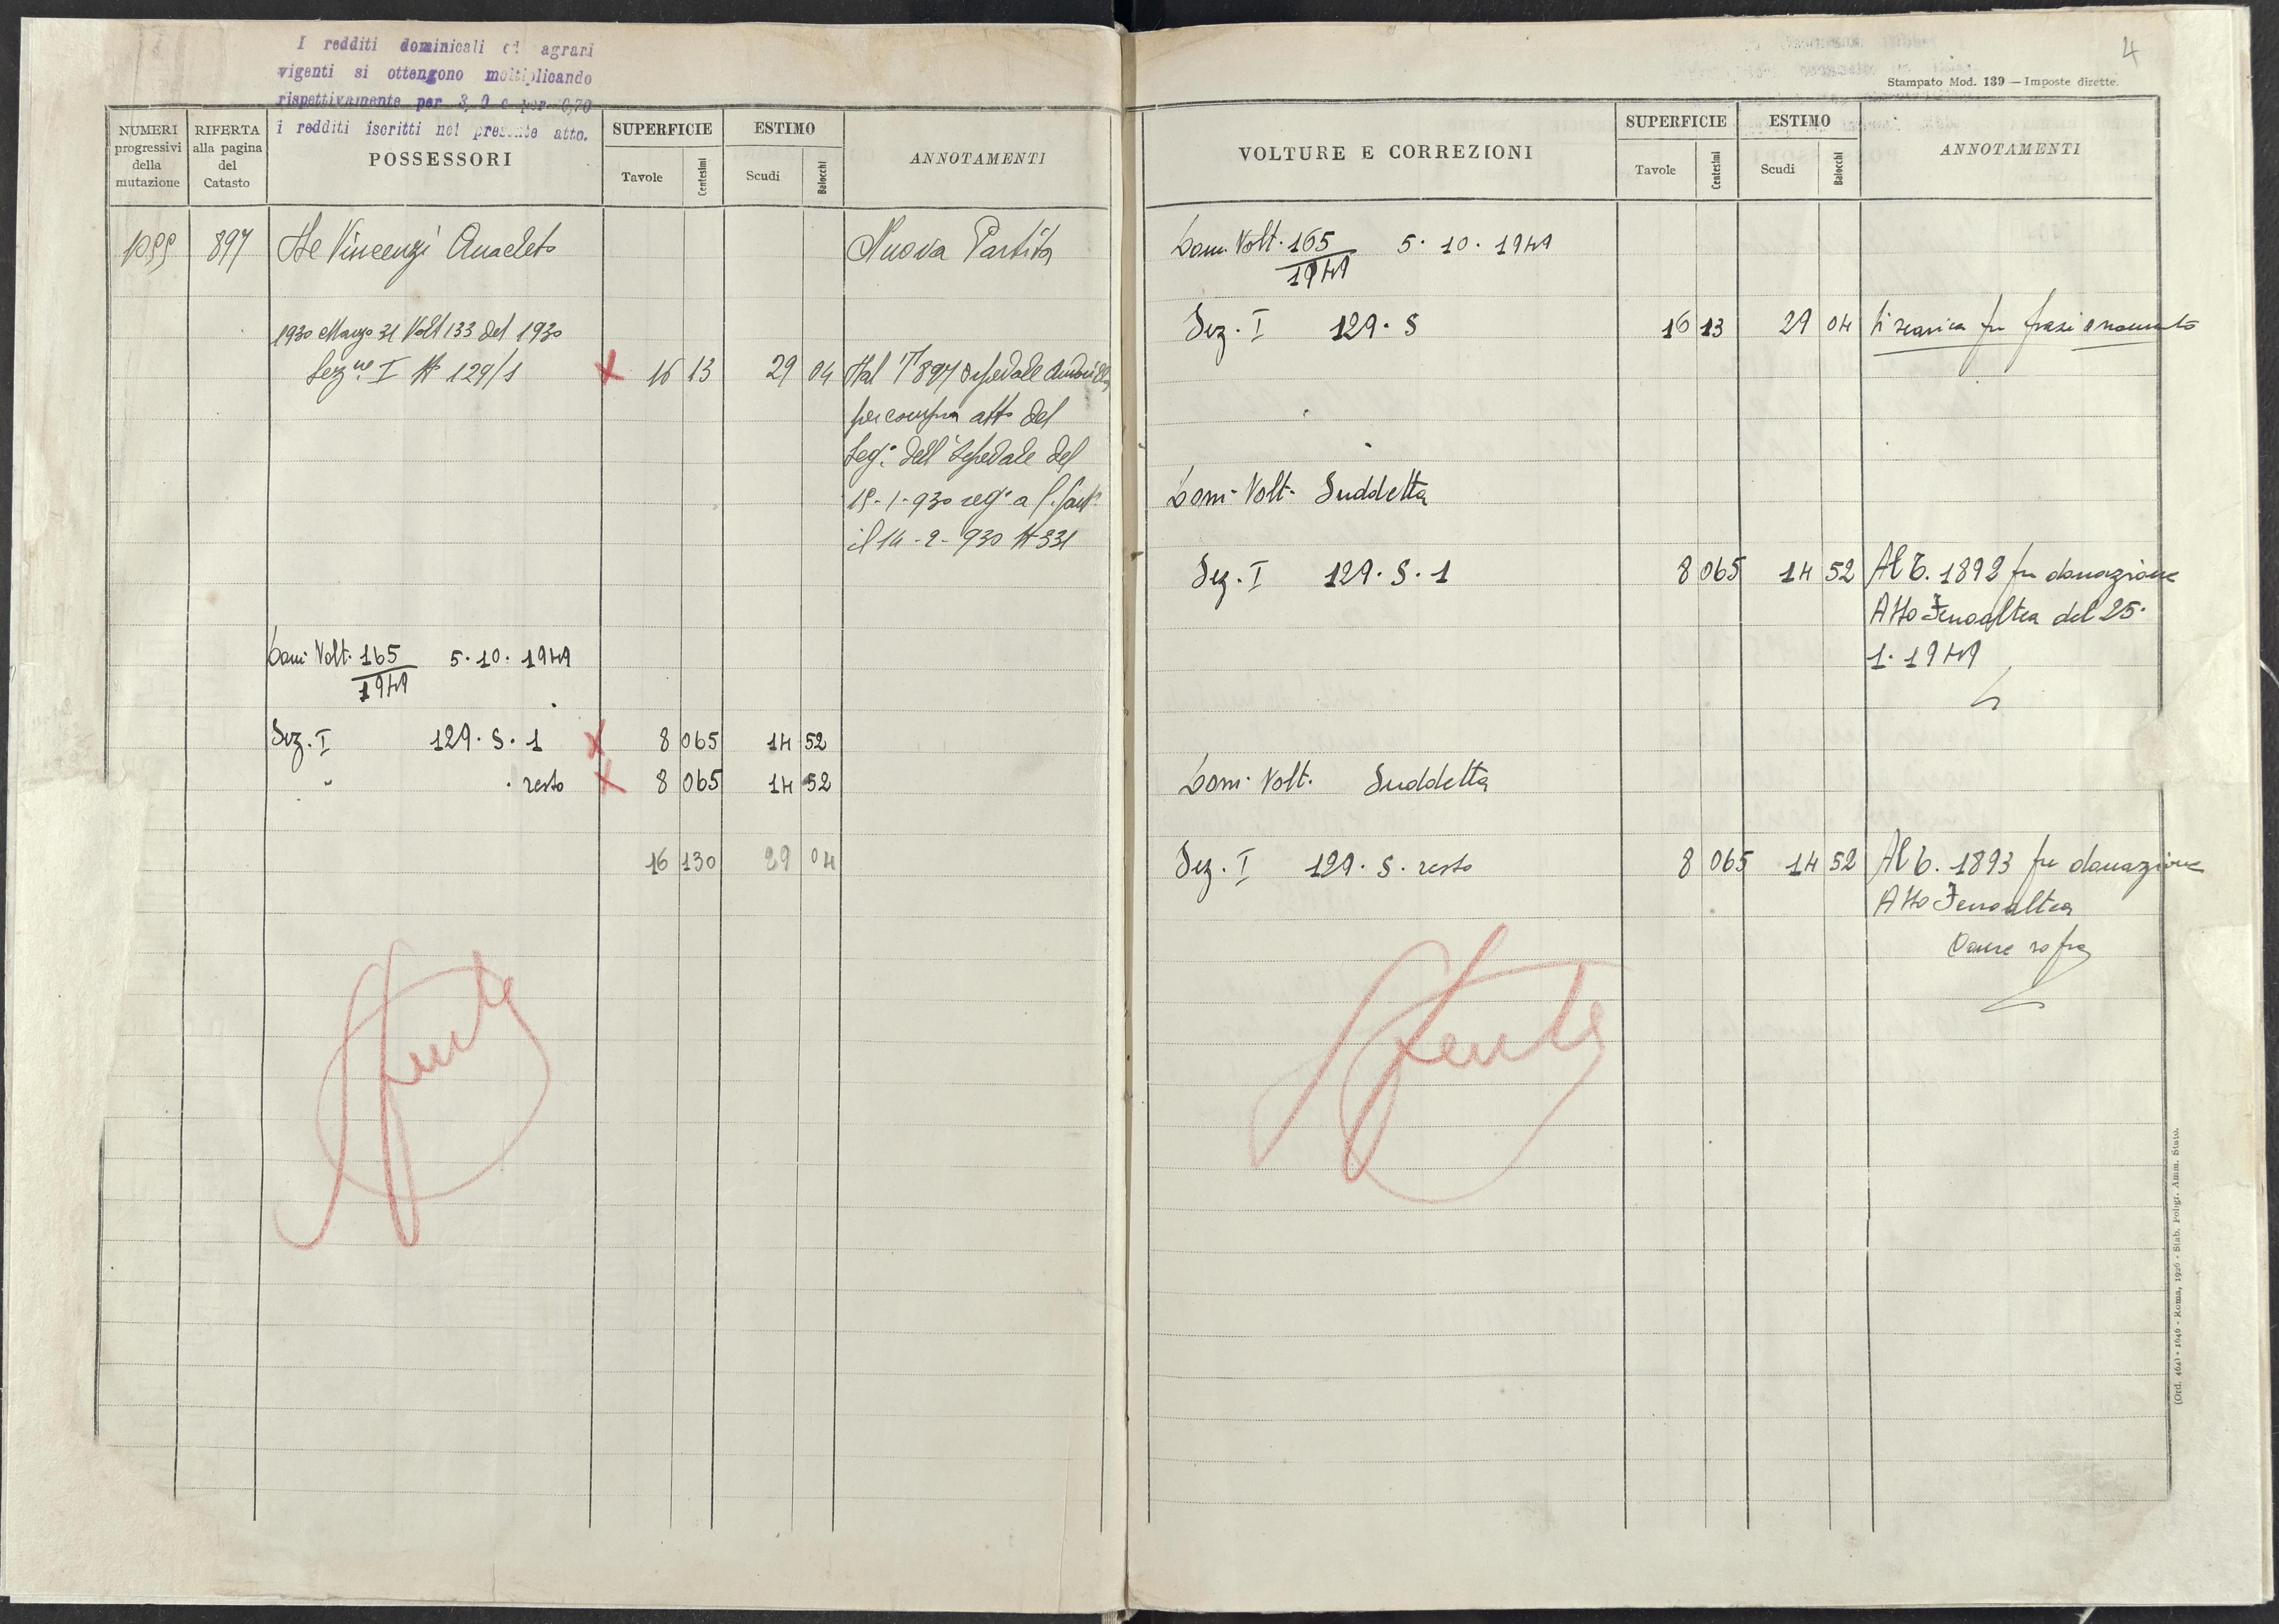 I redditi dominicali ed agrari
vigenti si ottengono moltiplicando
rispettivamente per 3,0 e per 0,70
i redditi iscritti nel presente atto.
NUMERI progressivi della mutazione
RIFERTA alla pagina del Catasto
POSSESSORI
SUPERFICIE
Tavole Centesimi
ESTIMO
Scudi Baiocchi
ANNOTAMENTI
897 De Vincenzi Anacleto Nuova Partita
1930 Marzo 31 Volt 133 del 1930
Sezne I N 129/S 16 13 29 04 Dal T 897 Ospedale
per compra atto del
Seg. dell'Ospedale del
15-1-930 reg. a
il 14-2-930 N 331
Dom. Volt. 165/1949 5.10.1949
Sez. I 129.S.1 8 065 14 52
" . resto 8 065 14 52
16 130 29 04
Spenta
4
Stampato Mod. 139 — Imposte dirette.
VOLTURE E CORREZIONI
SUPERFICIE
Tavole Centesimi
ESTIMO
Scudi Baiocchi
ANNOTAMENTI
Dom. Volt. 165/1949 5.10.1949
Sez. I 129.S 16 13 29 04 Si scarica per frazionamento
Dom. Volt. Suddetta
Sez. I 129.S.1 8 065 14 52 Al T. 1892 per donazione
Atto Fenoaltea del 25.
1.1949
Dom. Volt. Suddetta
Sez. I 129.S.resto 8 065 14 52 Al T. 1893 per donazione
Atto Fenoaltea
come sopra
Spenta
(Ord. 464) - 1646 - Roma, 1926 - Stab. Poligr. Amm. Stato.